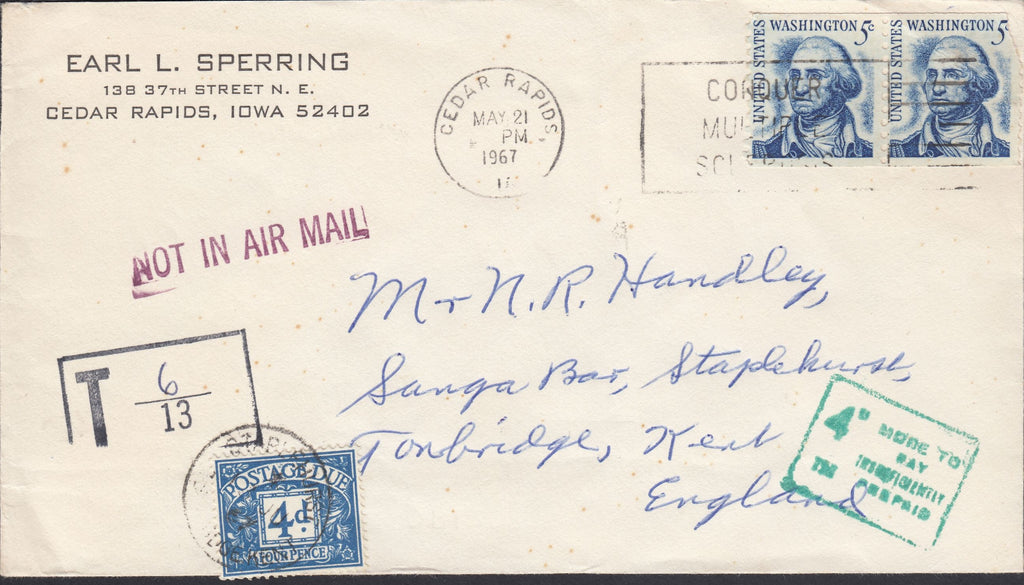 EARL L. SPERRING
138 37TH STREET N. E.
CEDAR RAPIDS, IOWA 52402
CEDAR RAPIDS,
MAY 21
PM
1967
CONQUER
MULTIPLE
SCLEROSIS
UNITED STATES WASHINGTON 5c
UNITED STATES WASHINGTON 5c
NOT IN AIR MAIL
Mr N.R. Handley,
Sanga Bar, Staplehurst,
Tonbridge, Kent
England
T 6
13
POSTAGE DUE
4d.
FOURPENCE
4D MORE TO
PAY
INSUFFICIENTLY
PREPAID